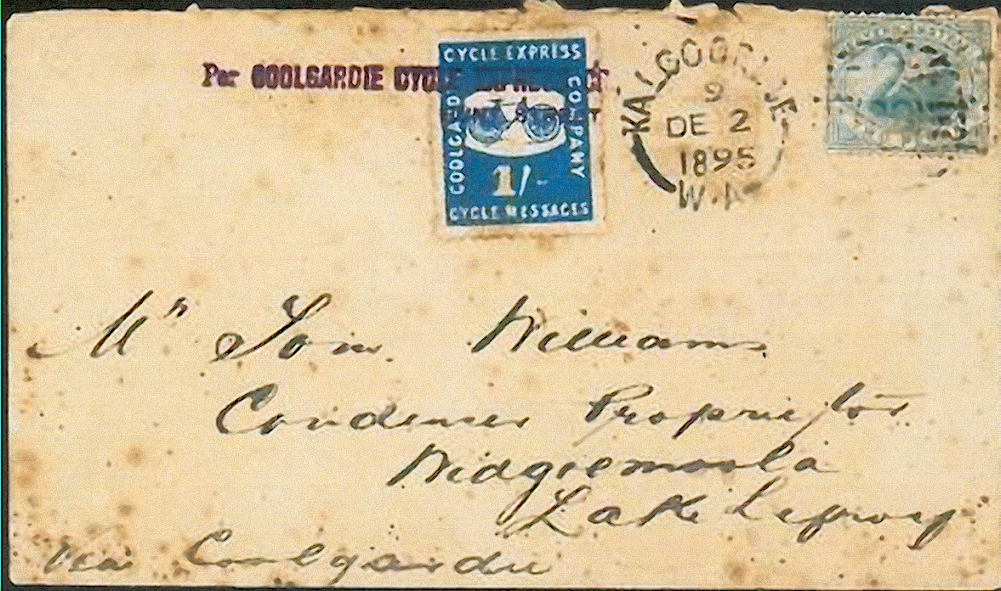 Per COOLGARDIE CYCLE
CYCLE EXPRESS
COOLGARD
COMPANY
1/-
CYCLE MESSAGES
KALGOORLIE
9
DE 2
1895
W.A
Mr Tom Williams
Condenser Proprietor
Widgiemoola
Lake Lefroy
Via Coolgardie